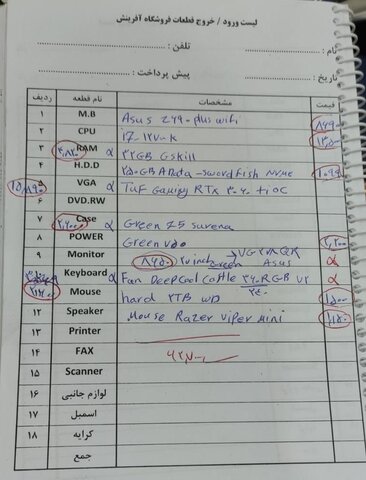 لیست ورود / خروج قطعات فروشگاه آفرینش
نام : تلفن :
تاریخ : پیش پرداخت :
ردیف نام قطعه مشخصات قیمت
۱ M.B Asus z690-plus wifi ۸۶۹۰
۲ CPU i7-12700k ۱۳۵۰۰
۳ RAM ۳۲GB GSkill
۴ H.D.D ۲۵۰GB AData-swordfish nvme ۱۰۹۹
۵ VGA TUF Gaming RTX ۳۰۶۰ ti OC
۶ DVD.RW
۷ Case Green Z5 surena ۲۶۰۰
۸ POWER Green ۷۵۰ ۲۲۰۰
۹ Monitor ۸۶۵۰ Asus
Keyboard Fan DeepCool Castle ۳۶۰RGB V2
Mouse hard ۲TB WD ۱۵۰۰
۱۲ Speaker mouse Razer Viper Mini
۱۳ Printer
۱۴ FAX
۱۵ Scanner
۱۶ لوازم جانبی
۱۷ اسمبل
۱۸ کرایه
جمع